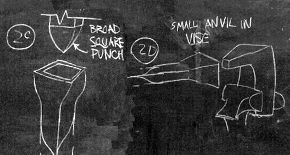 2C
BROAD
SQUARE
PUNCH
2D
SMALL ANVIL IN
VISE